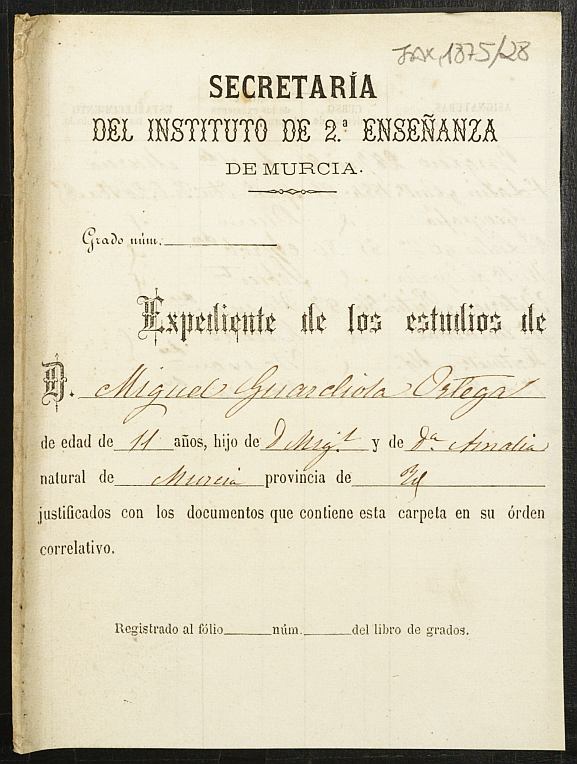 JAX,1875/28
SECRETARÍA
DEL INSTITUTO DE 2.ª ENSEÑANZA
DE MURCIA.
Grado núm.
Expediente de los estudios de
D. Miguel Guardiola Ortega
de edad de 11 años, hijo de D Mig.l y de Da. Amalia
natural de Murcia provincia de Id
justificados con los documentos que contiene esta carpeta en su órden
correlativo.
Registrado al fólio núm. del libro de grados.